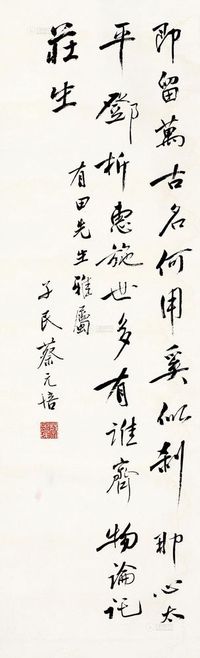 即留萬古名何用奚似刹那心太
平鄧析惠施世多有誰齊物論託
莊生
有田先生雅屬
子民蔡元培